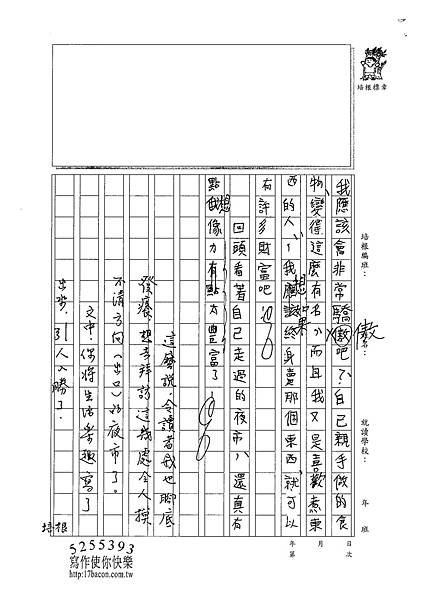 培根標章
培根編班：
姓名：
就讀學校：
年 班
我應該會非常驕傲吧？自己親手做的食
傲
物，變得這麼有名，而且我又是喜歡煮東
西的人，我應該終身賣那個東西，就可以
想
果
有許多財富吧！
回頭看著自己走過的夜市，還真有
點佩像力有點太豐富了！
想
這麼說，令讀者我也腳底
發癢，想去拜訪這幾處令人摸
不清方向（出口）的夜市了。
文中，你將生活樂趣寫了
出來，引人入勝了。
年 月 日
第 次
培根
5255393
寫作使你快樂
http://17bacon.com.tw